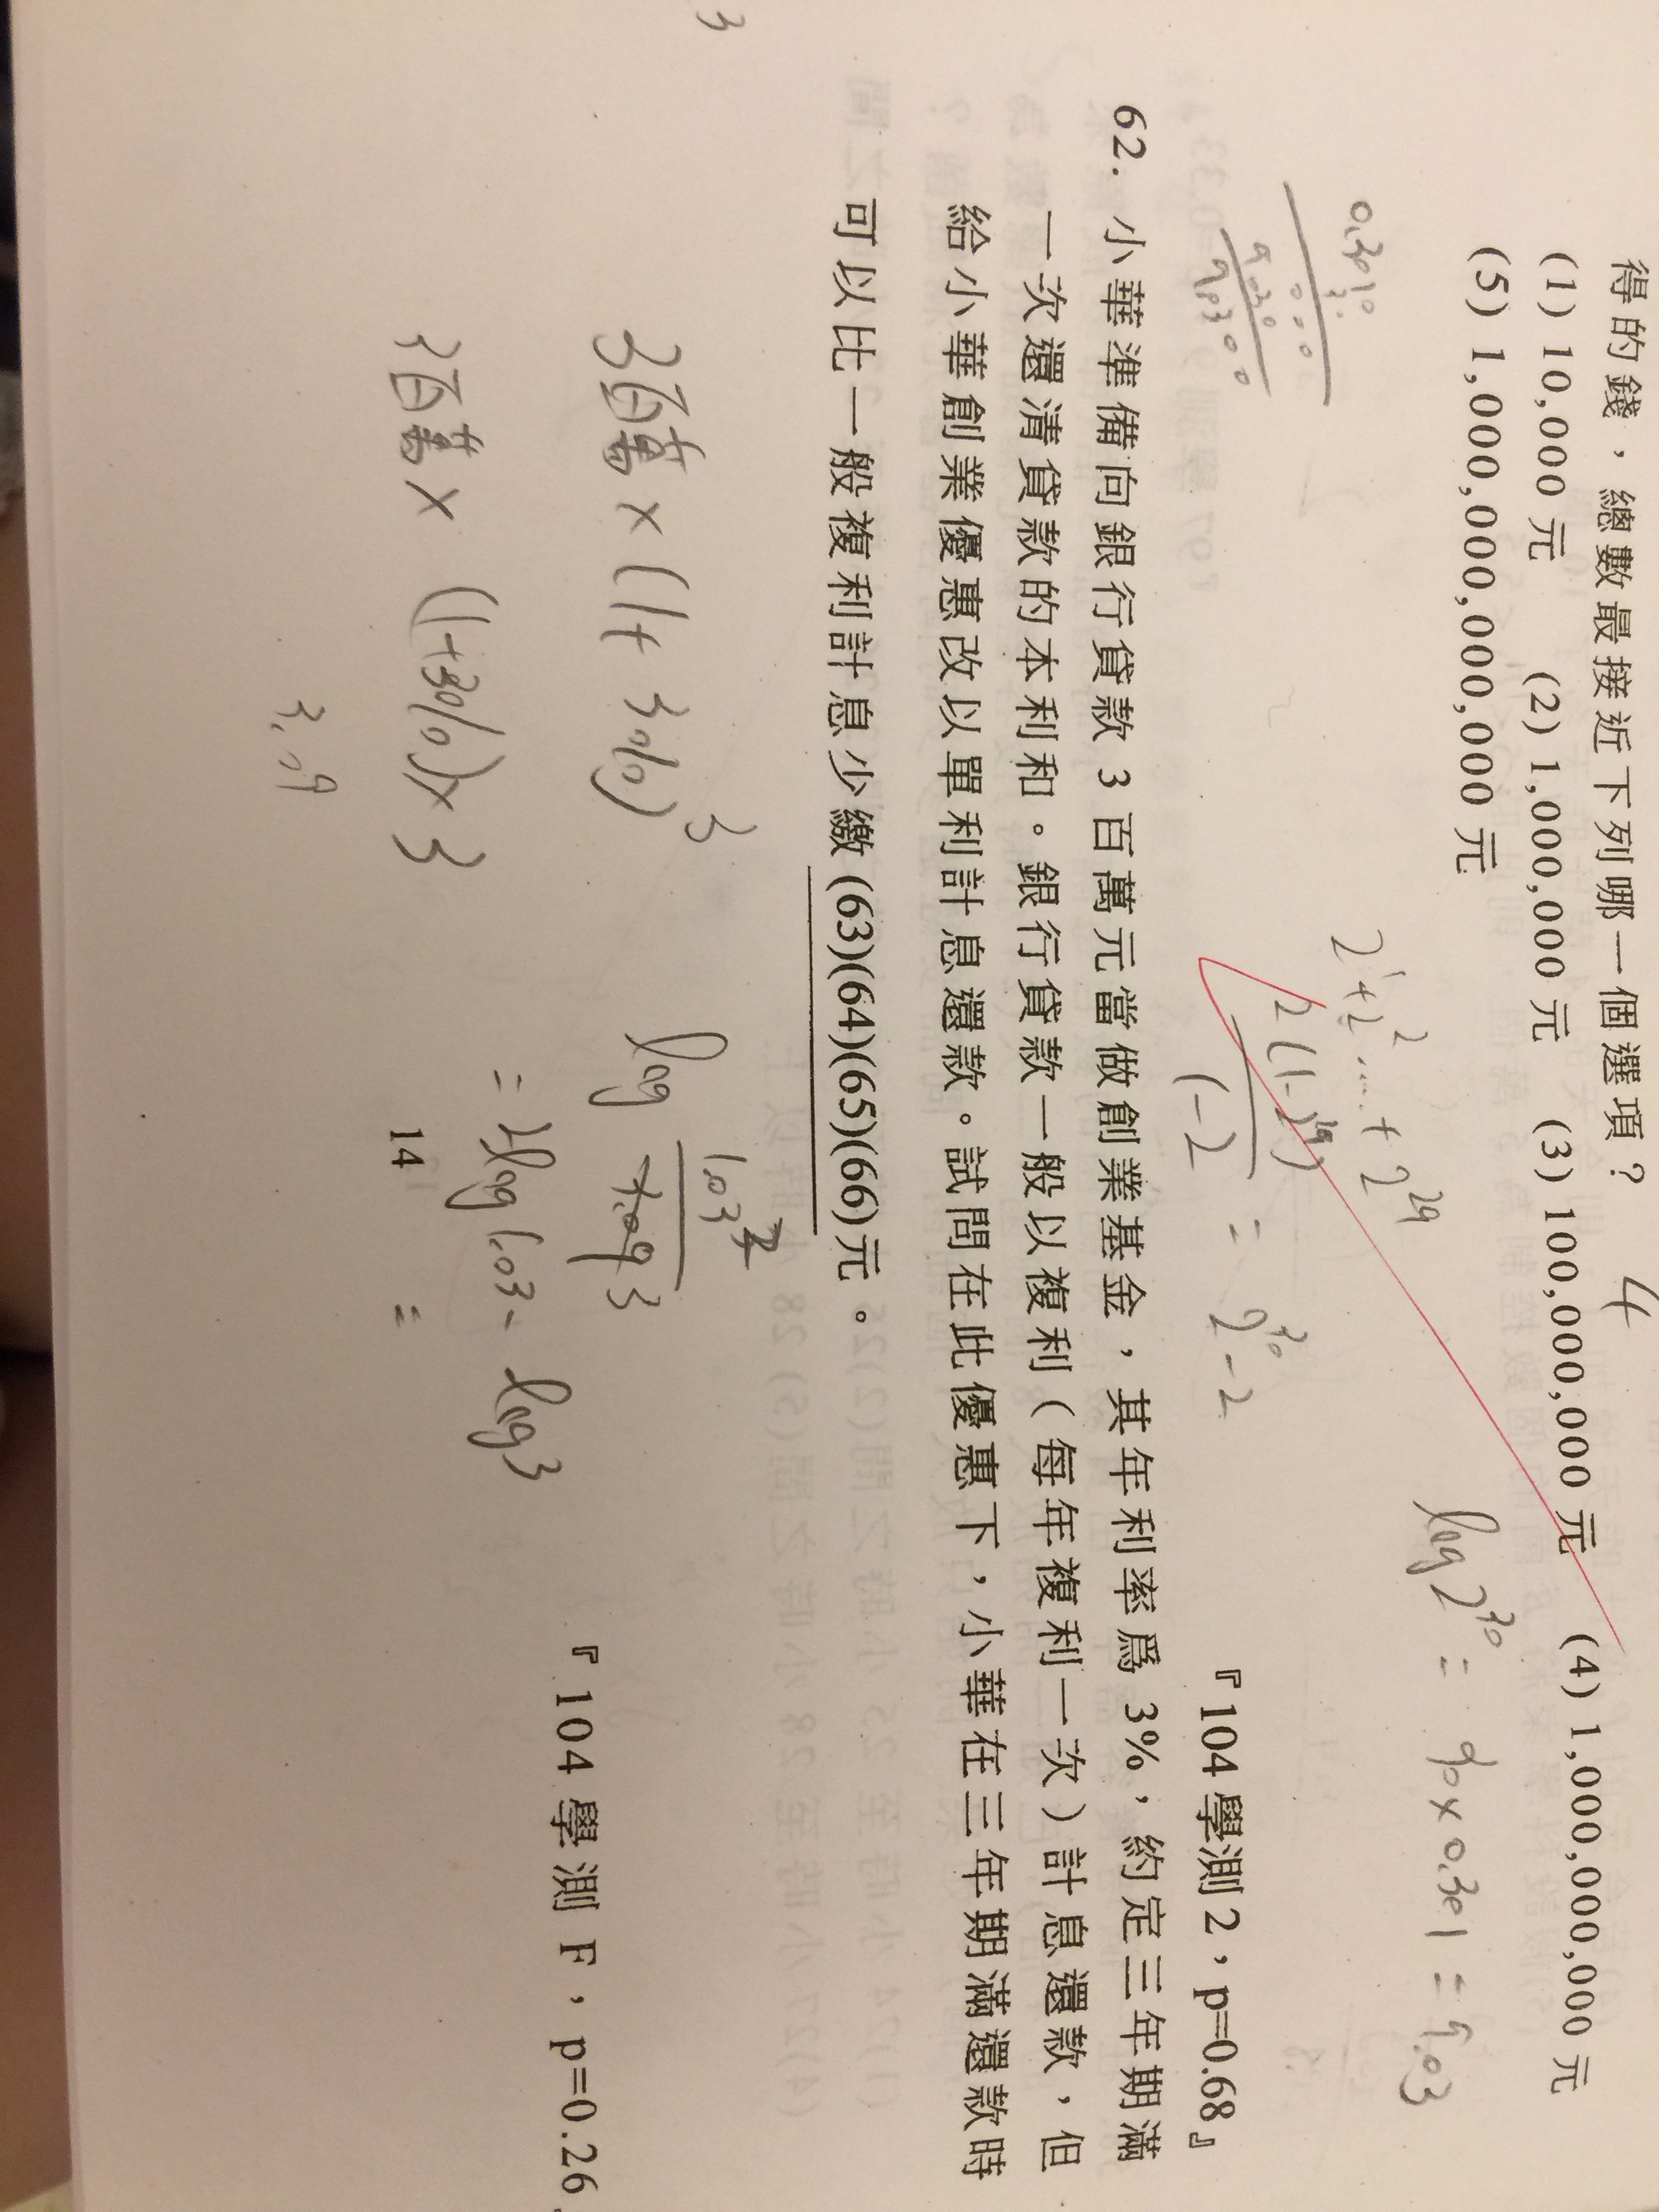 得的錢，總數最接近下列哪一個選項？ 4
(1) 10,000元 (2) 1,000,000元 (3) 100,000,000元 (4) 1,000,000,000元
(5) 1,000,000,000,000元
log2³⁰ = 30×0.301 = 9.03
2¹+2²...+2²⁹
= 2³⁰-2
『104學測2，p=0.68』
62. 小華準備向銀行貸款3百萬元當做創業基金，其年利率爲3%，約定三年期滿
一次還清貸款的本利和。銀行貸款一般以複利（每年複利一次）計息還款，但
給小華創業優惠改以單利計息還款。試問在此優惠下，小華在三年期滿還款時
可以比一般複利計息少繳(63)(64)(65)(66)元。
3百萬×(1+3%)³
3百萬×(1+3%)×3
3.09
log
1.03
3
= 2log1.03 - log3
=
『104學測F，p=0.26
14
3